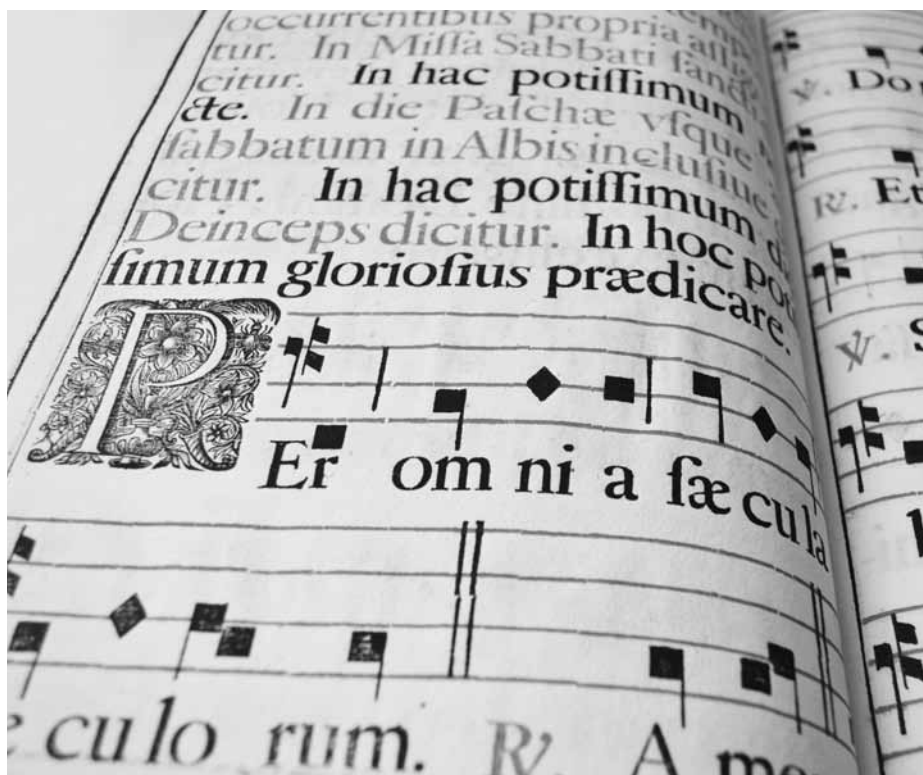 occurrentibus propria
tur. In Miſſa Sabbati
citur. In hac potiſſimum
&te. In die Paſchæ vſque
ſabbatum in Albis incluſiue
citur. In hac potiſſimum
Deinceps dicitur. In hoc
ſimum glorioſius prædicare.
PEr om ni a ſæ cu la
culo rum. ℟. A
℣.
℟.
℣.